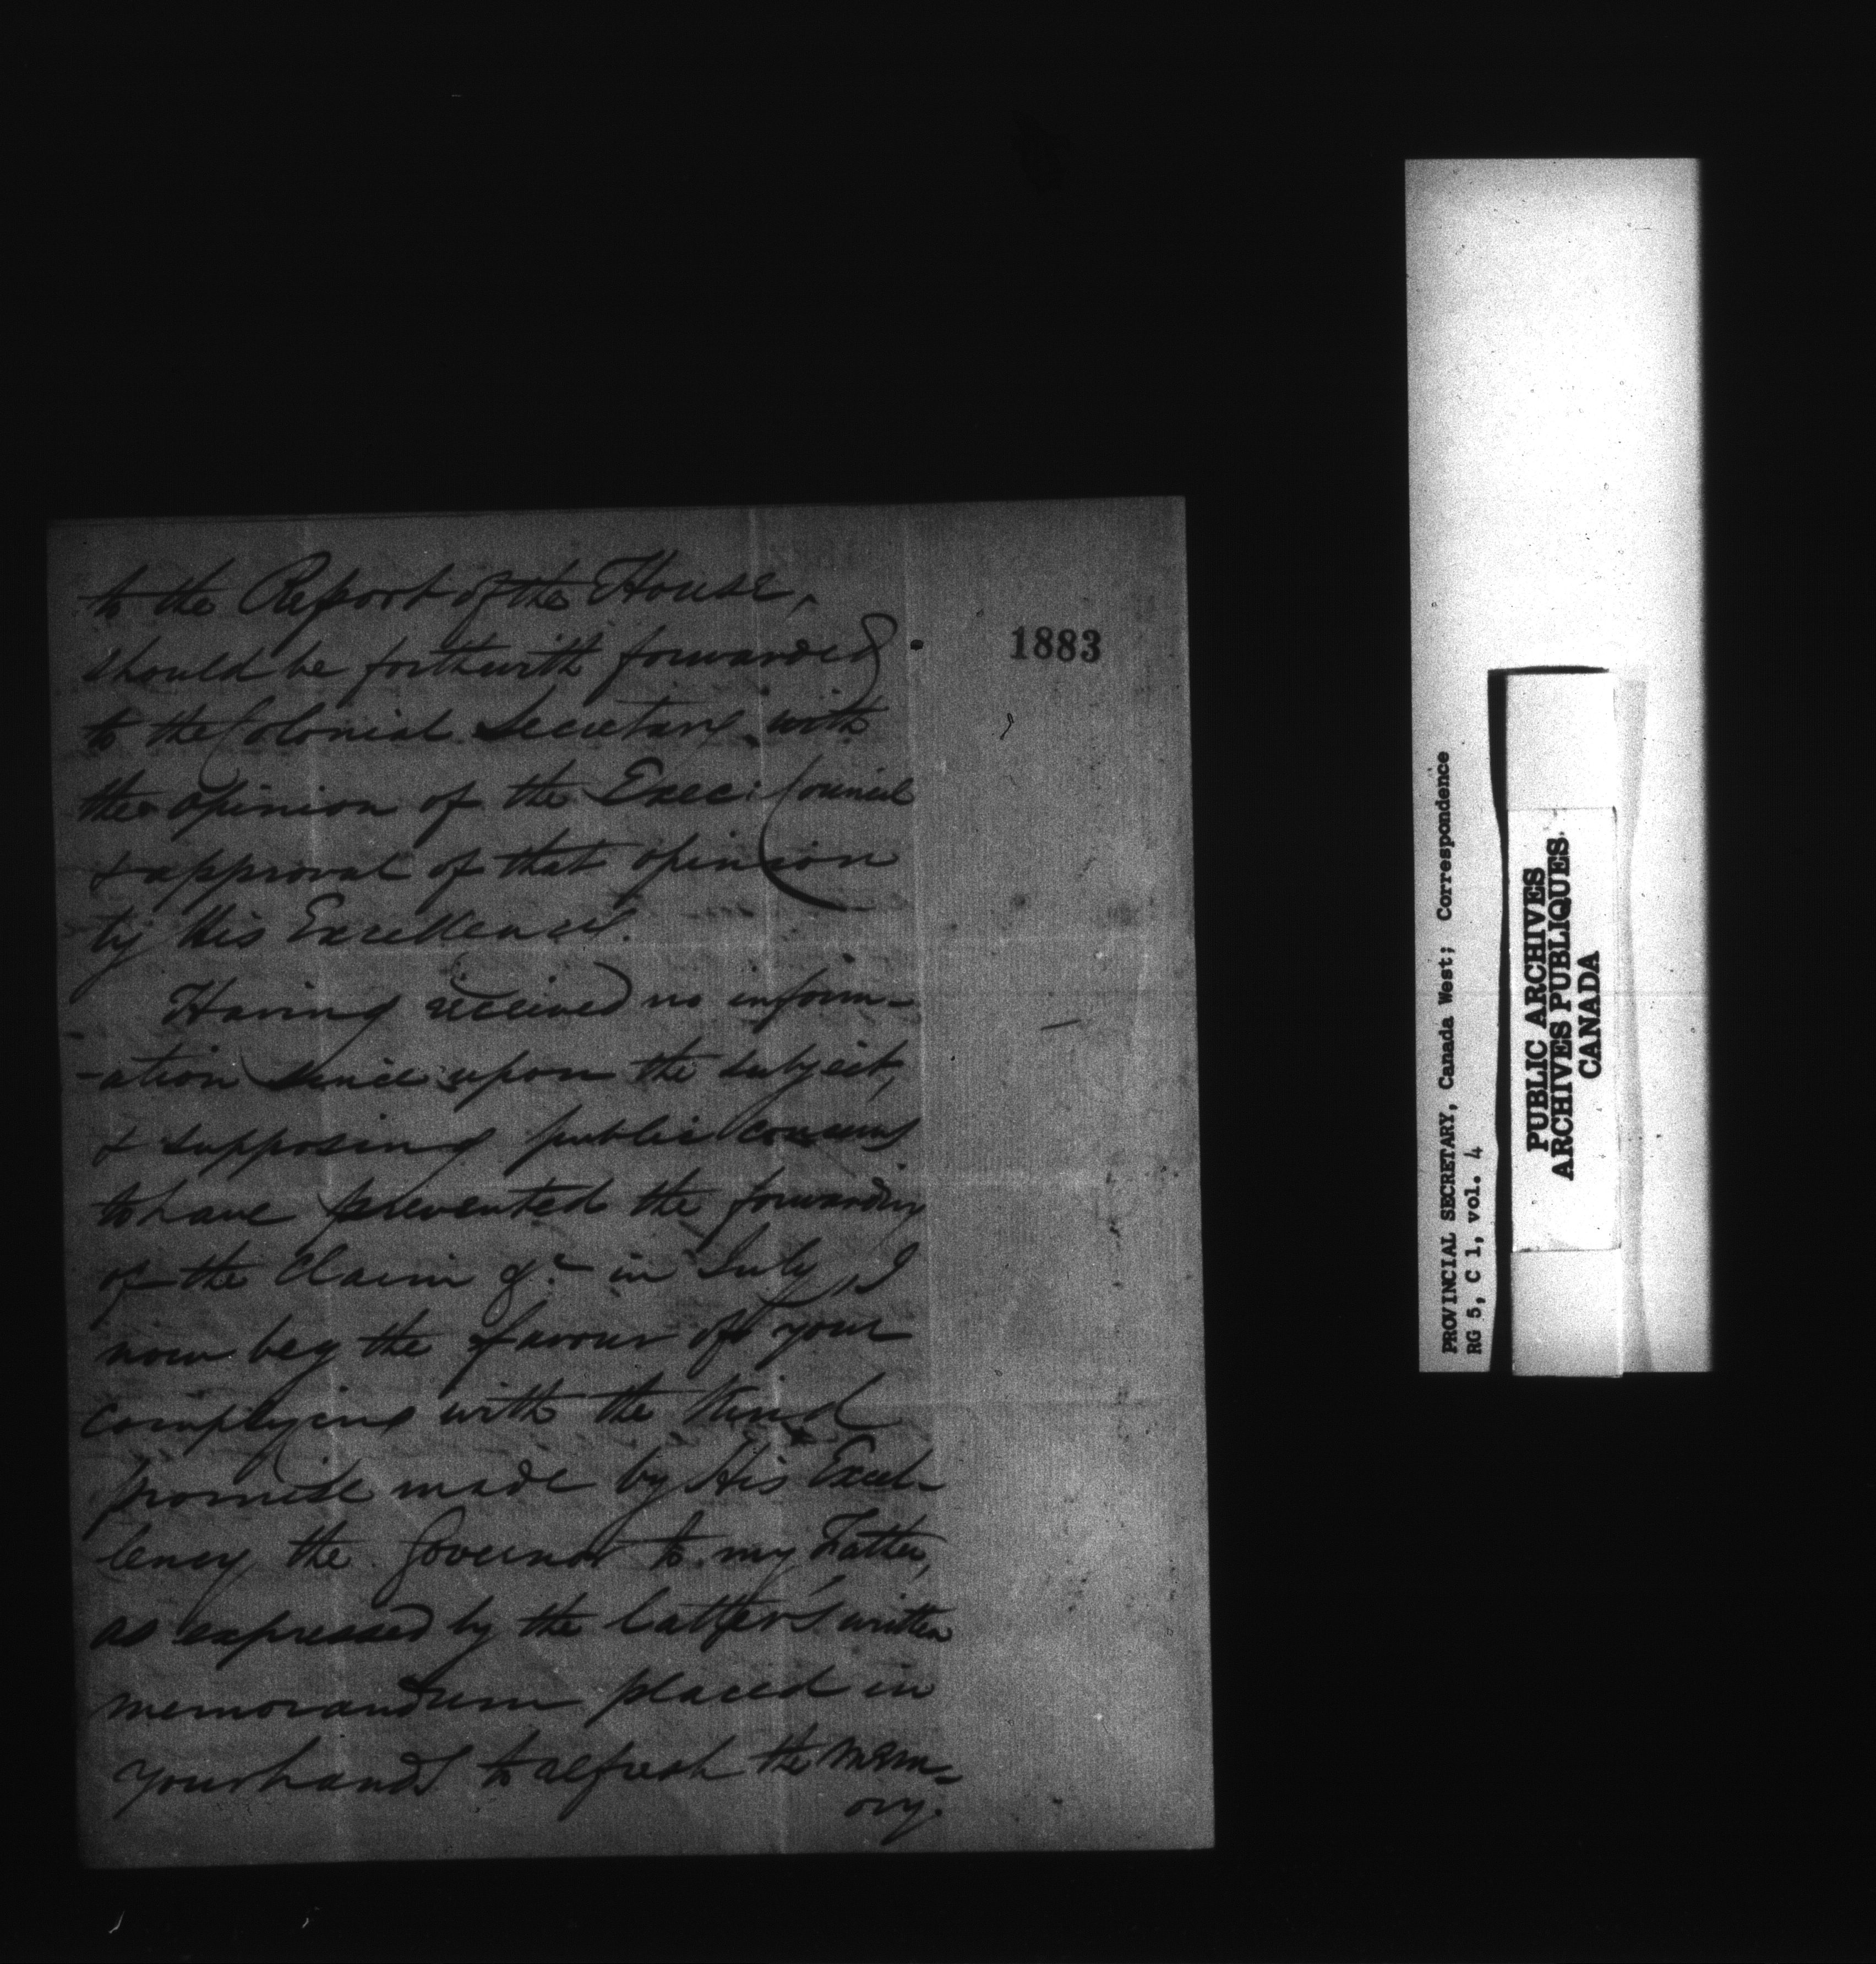 to the Report of the House,
should be forthwith forwarded
to the Colonial Secretary, with
the opinion of the Exec: Council
& approval of that opinion
by His Excellency.
Having received no inform-
-ation since upon the subject,
& supposing public concerns
to have prevented the forwarding
of the Claim &c in July, I
now beg the favour of your
complying with the kind
promise made by His Excel-
lency the Governor to my Father,
as expressed by the latter's written
memorandum placed in
your hands to refresh the mem-
ory.
1883
PROVINCIAL SECRETARY, Canada West; Correspondence
RG 5, C 1, vol. 4
PUBLIC ARCHIVES
ARCHIVES PUBLIQUES
CANADA